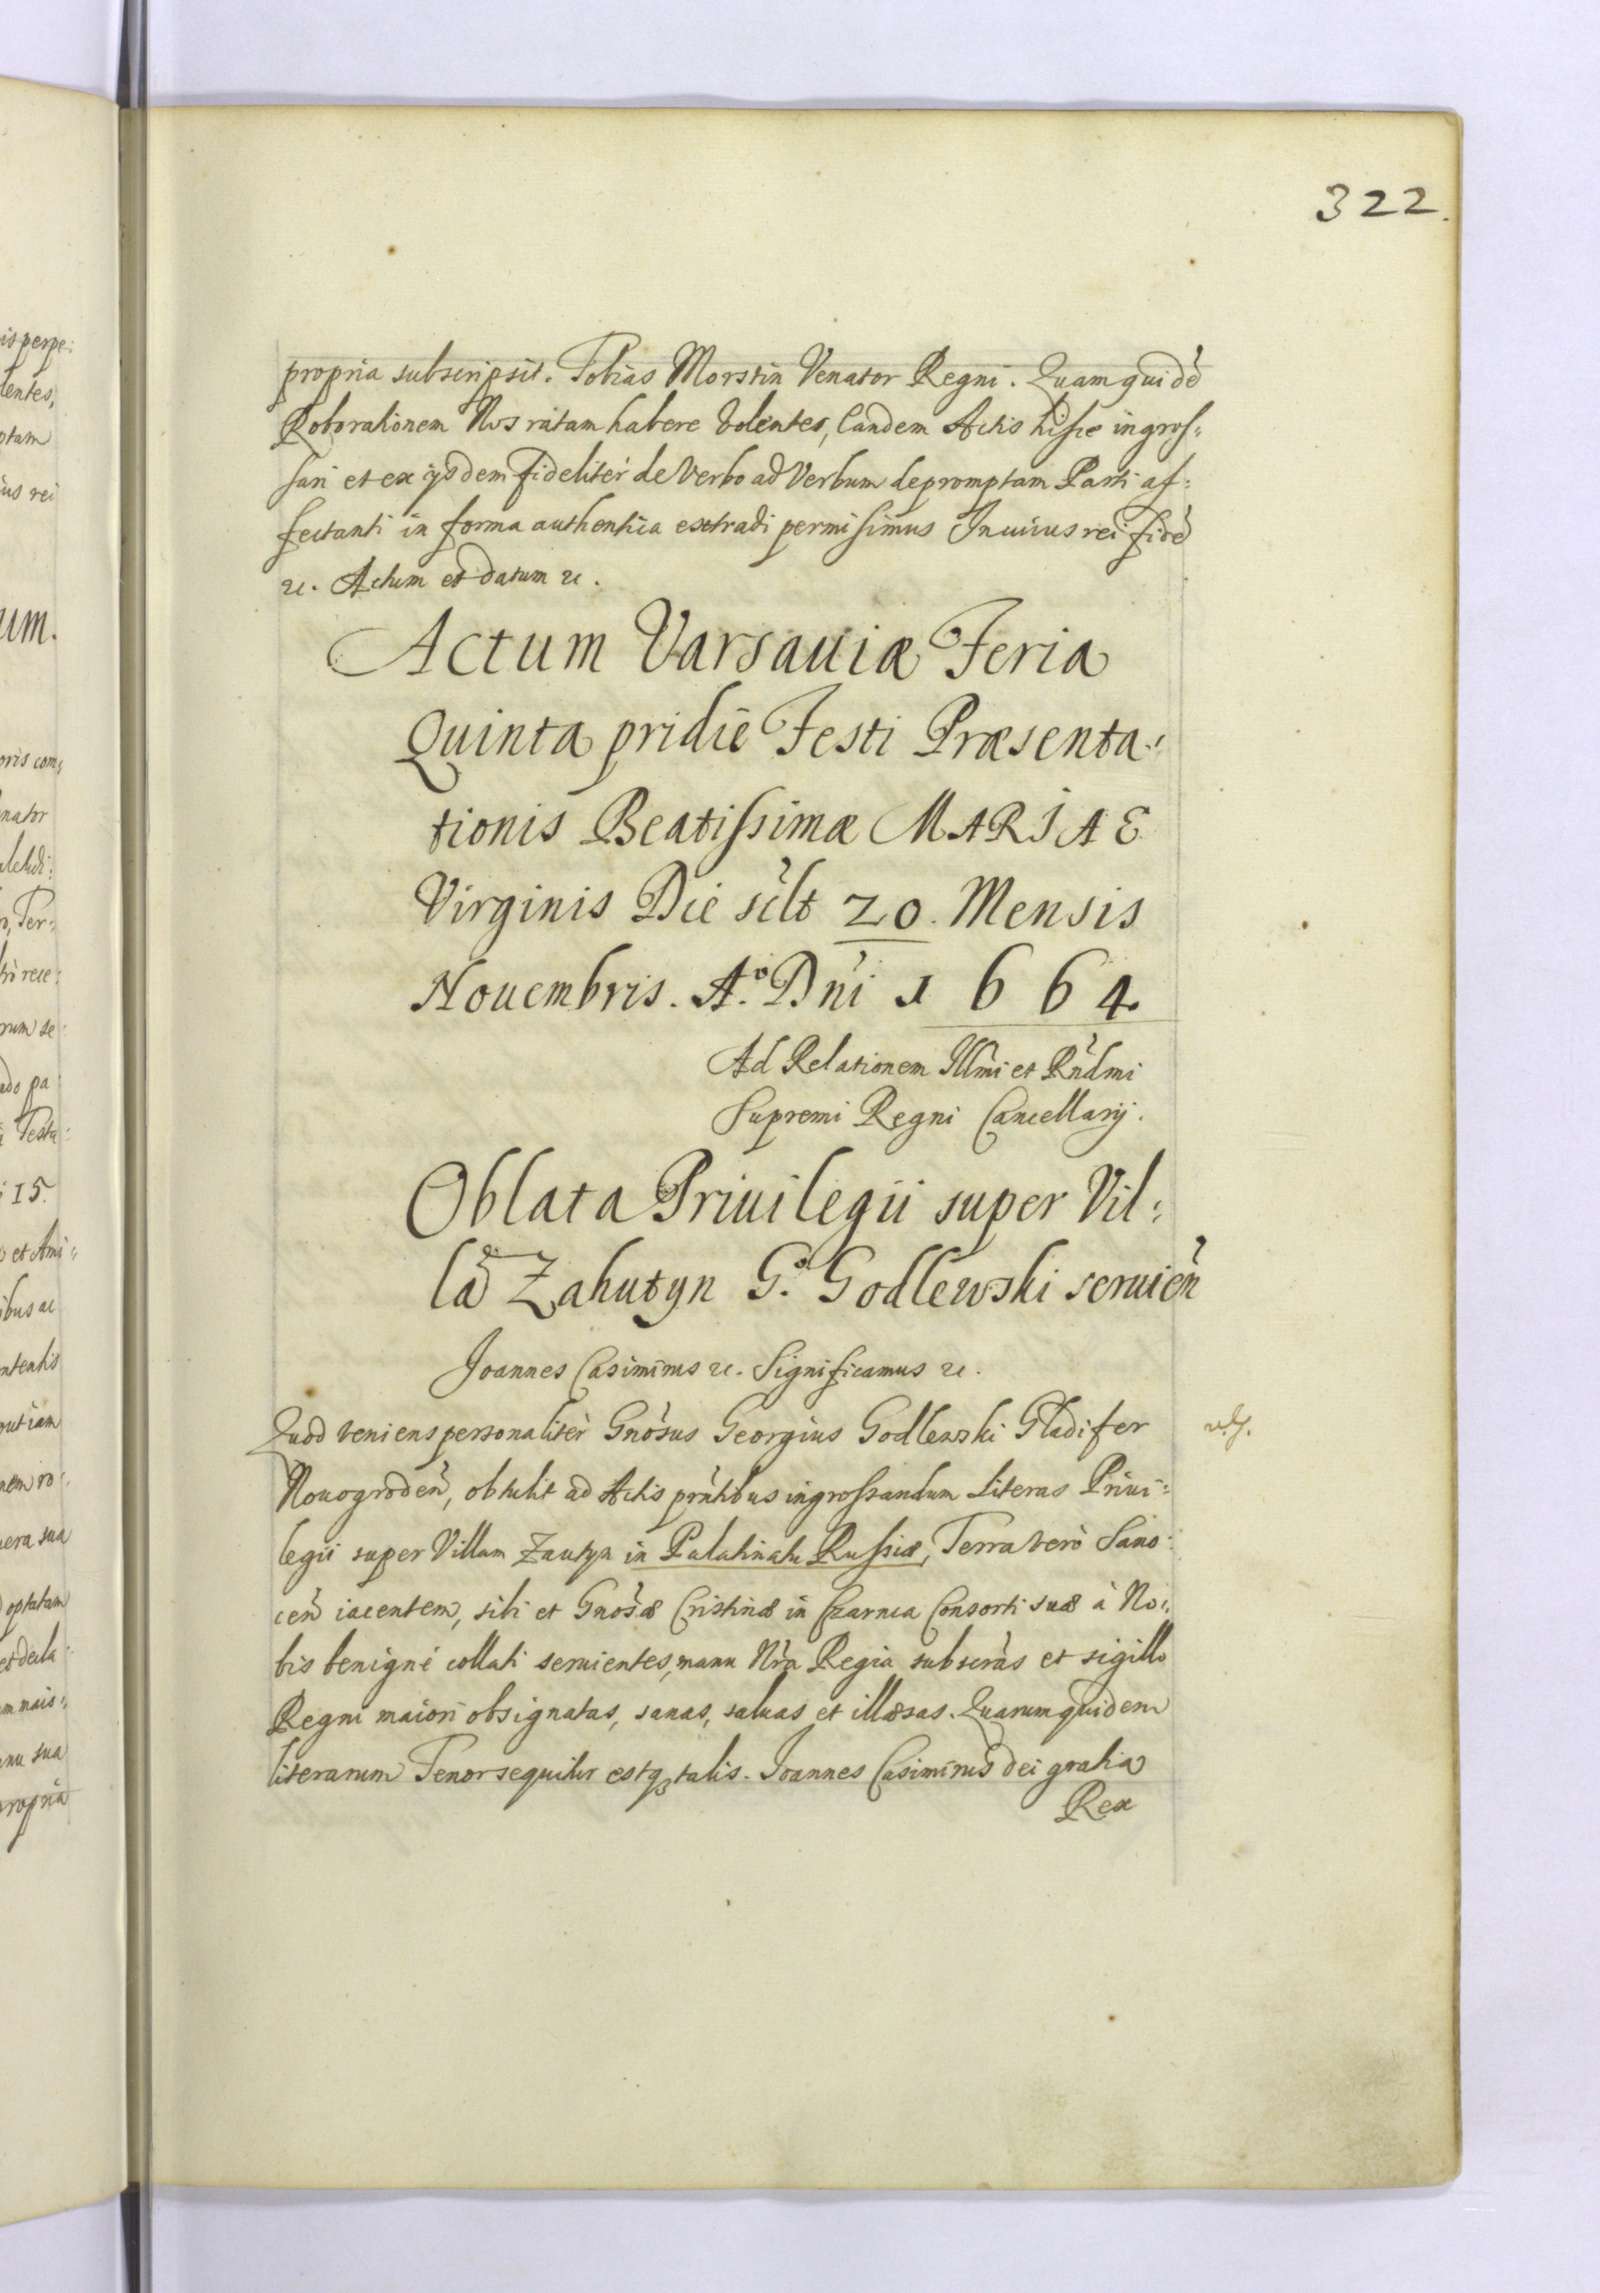 322.
propria subscripsit. Tobias Morstin Venator Regni. Quam quidẽ
Roborationem Nos ratam habere Volentes, Eandem Actis hisce ingros=
sari et ex ijsdem fideliter de Verbo ad Verbum depromptam Parti af=
fectanti in forma authentica extradi permisimus In cuius rei fidẽ
etc. Actum et datum etc.
Actum Varsauiæ Feria
Quinta pridie Festi Præsenta=
tionis Beatissimæ MARIAE
Virginis Die scilt 20. Mensis
Nouembris. Aº. Dni 1664
Ad Relationem Illmi et Rndmi
Supremi Regni Cancellarij.
Oblata Priuilegii super Vil=
lã Zahutyn Gº. Godlewski seruien̄
Joannes Casimirus etc. Significamus etc.
Quod veniens personaliter Gnosus Georgius Godlewski Gladifer
Nouogroden̄, obtulit ad Actis prntibus ingrossandum Literas Priui=
legii super Villam Zautyn in Palatinatu Russiæ, Terra verò Sano=
cen̄ iacentem, sibi et Gnosæ Cristinæ in Czarnca Consorti suæ à No=
bis benignè collati seruientes, manu Nra Regia subscras et sigillo
Regni maiori obsignatas, sanas, saluas et illæsas. Quarum quidem
literarum Tenor sequitur estq3 talis. Joannes Casimirus Dei gratia
Rex